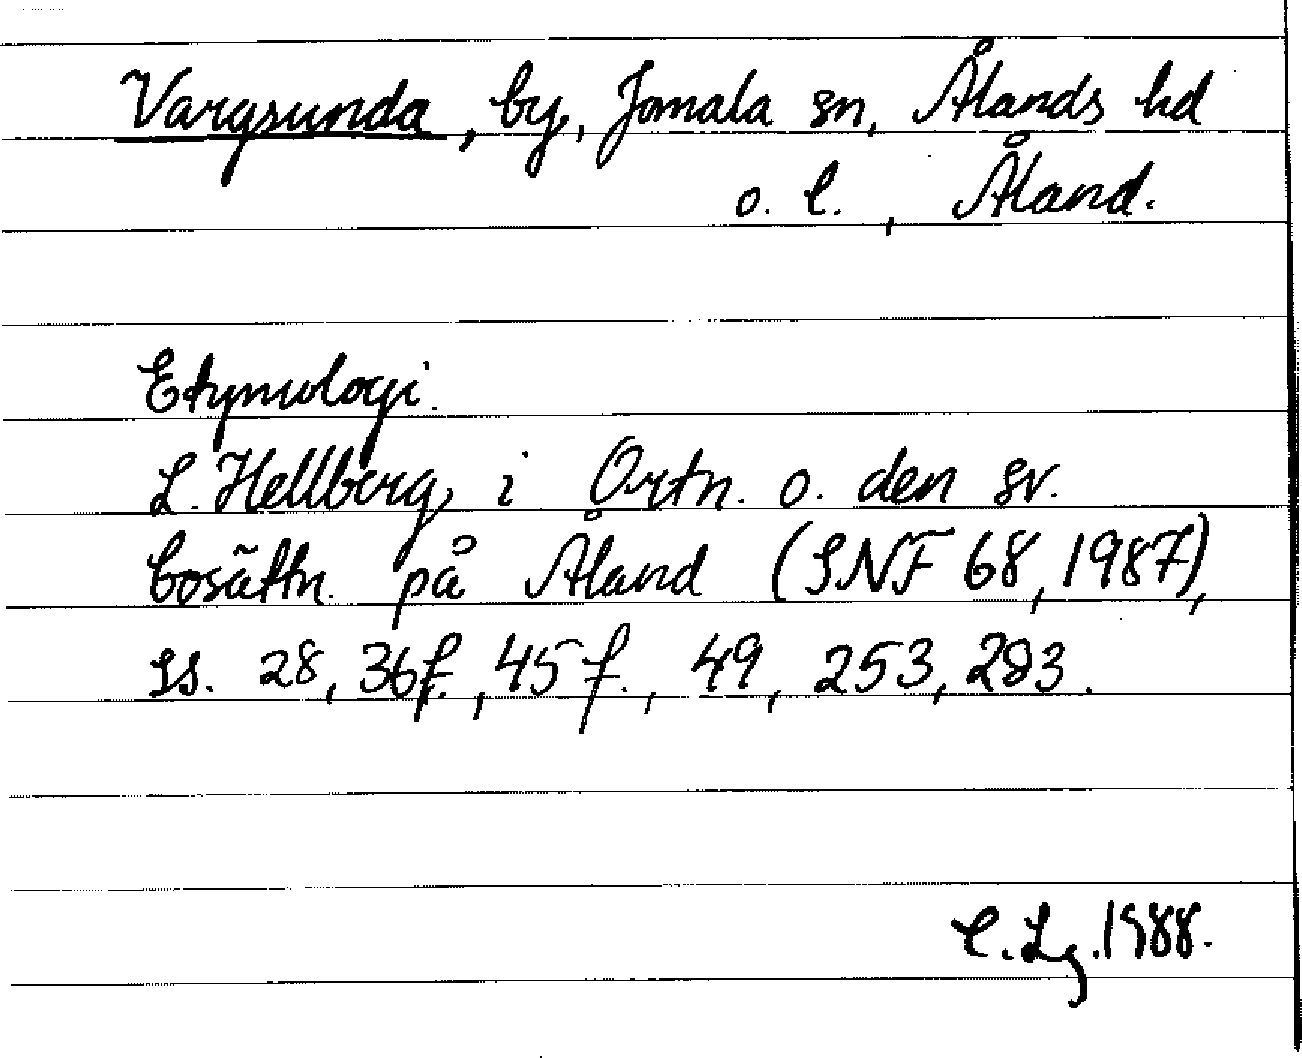 Vargsunda, by, Jomala sn, Ålands hd
o. l., Åland.
Etymologi.
L. Hellberg, i Ortn. o. den sv.
bosättn. på Åland (SNF 68, 1987),
ss. 28, 36 f., 45 f., 49, 253, 283.
C. Lg. 1988.